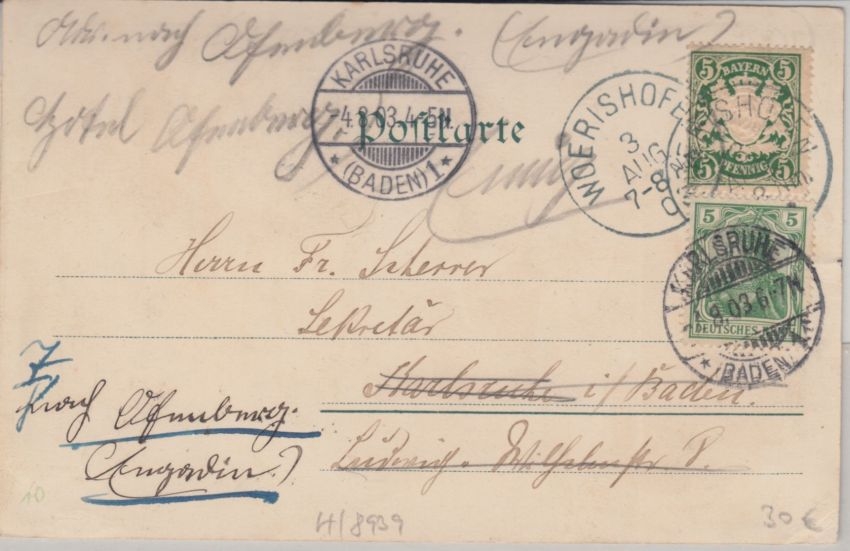 nach Ofenberg. (Engadin)
Hotel Ofenberg
Postkarte
KARLSRUHE
4.8.03.4-5N
(BADEN) 1.
WOERISHOFEN
3
AUG
7-8
5 BAYERN 5
5 PFENNIG 5
5 5
DEUTSCHES
KARLSRUHE
8.03.6-7N
(BADEN)
Herrn Fr. Scherrer
Sekretär
Karlsruhe i/Baden.
Ludwig-Wilhelmstr
nach Ofenberg.
(Engadin.)
10
H/8939
30 €